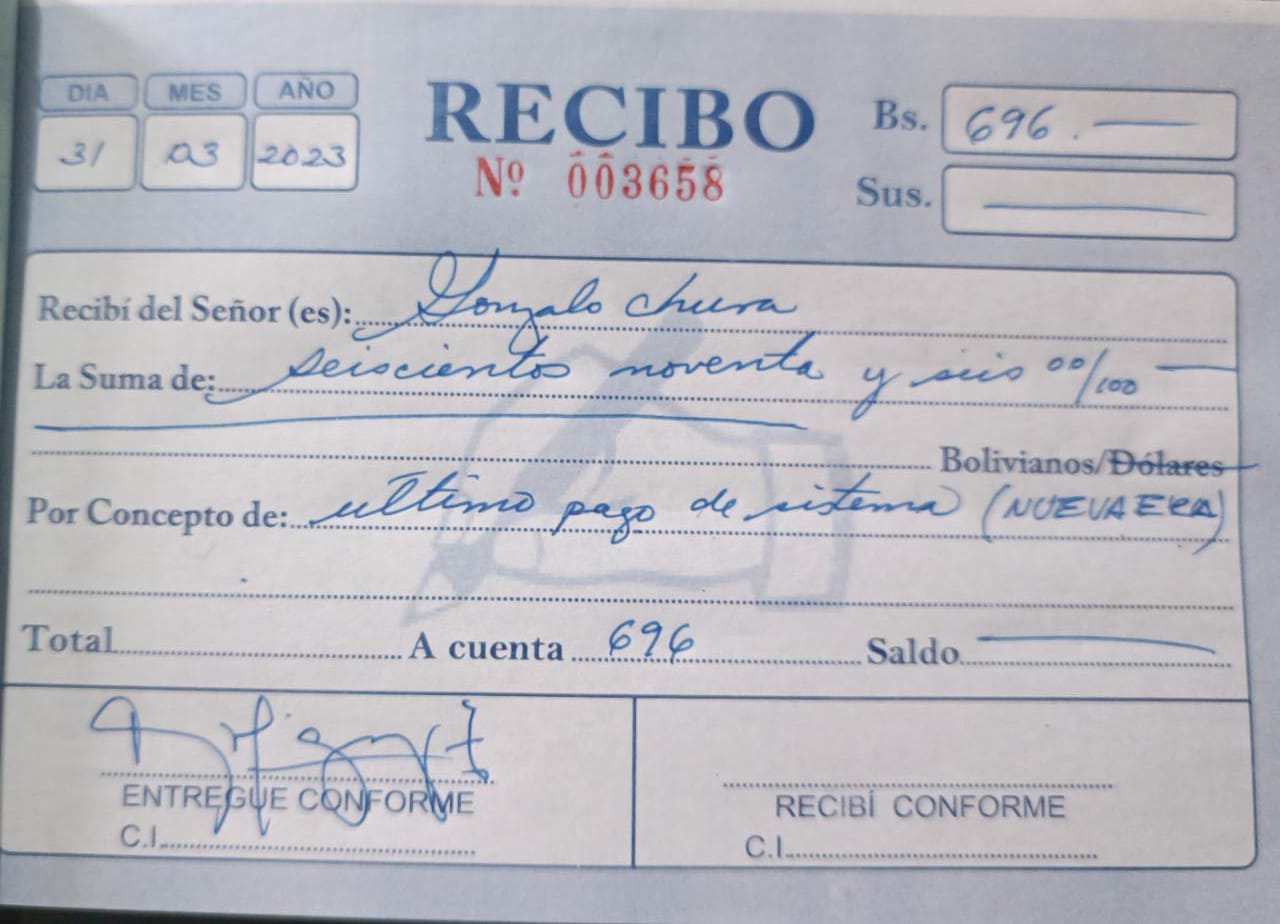 DIA MES AÑO
31 03 2023
RECIBO
Nº 003658
Bs. 696.
Sus.
Recibí del Señor (es): Gonzalo Chura
La Suma de: seiscientos noventa y seis 00/100
Bolivianos/Dólares
Por Concepto de: ultimo pago de sistema (NUEVA ERA)
Total A cuenta 696 Saldo
ENTREGUE CONFORME
C.I.
RECIBÍ CONFORME
C.I.